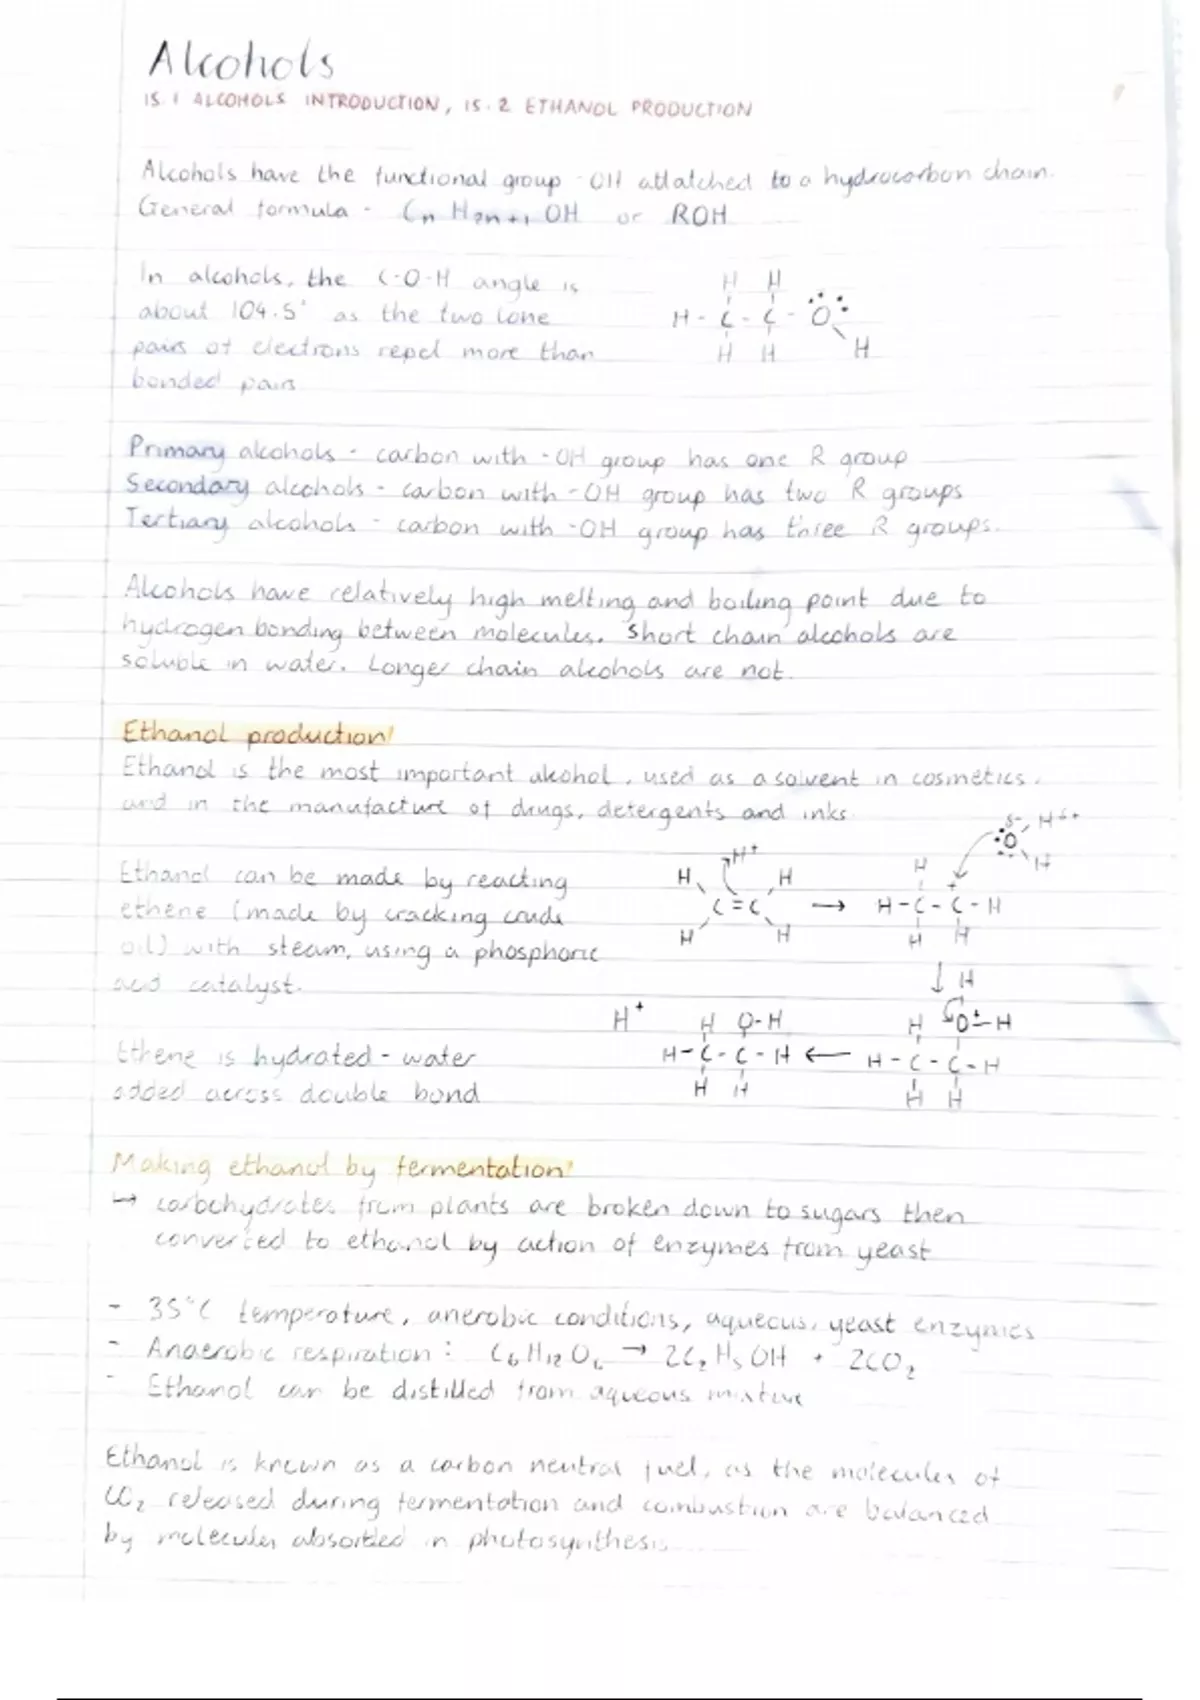 Alcohols
15.1 ALCOHOLS INTRODUCTION, 15.2 ETHANOL PRODUCTION
Alcohols have the functional group -OH attatched to a hydrocarbon chain.
General formula - CnH2n+1OH or ROH
In alcohols, the C-O-H angle is
about 104.5° as the two lone
pairs of electrons repel more than
bonded pairs
H H
H - C - C - O
H H H
Primary alcohols - carbon with -OH group has one R group
Secondary alcohols - carbon with -OH group has two R groups
Tertiary alcohols - carbon with -OH group has three R groups.
Alcohols have relatively high melting and boiling point due to
hydrogen bonding between molecules. Short chain alcohols are
soluble in water. Longer chain alcohols are not.
Ethanol production!
Ethanol is the most important alcohol, used as a solvent in cosmetics,
and in the manufacture of drugs, detergents and inks
Ethanol can be made by reacting
ethene (made by cracking crude
oil) with steam, using a phosphoric
acid catalyst.
Ethene is hydrated - water
added across double bond
H+
H H
C = C
H H
→
δ- H δ+
O
H
H +
H - C - C - H
H H
↓ H
H O+ - H
H - C - C - H
H H
←
H O-H
H - C - C - H
H H
H+
Making ethanol by fermentation!
↳ carbohydrates from plants are broken down to sugars then
converted to ethanol by action of enzymes from yeast
- 35°C temperature, anerobic conditions, aqueous, yeast enzymes
- Anaerobic respiration: C6H12O6 → 2C2H5OH + 2CO2
- Ethanol can be distilled from aqueous mixture
Ethanol is known as a carbon neutral fuel, as the molecules of
CO2 released during fermentation and combustion are balanced
by molecules absorbed in photosynthesis